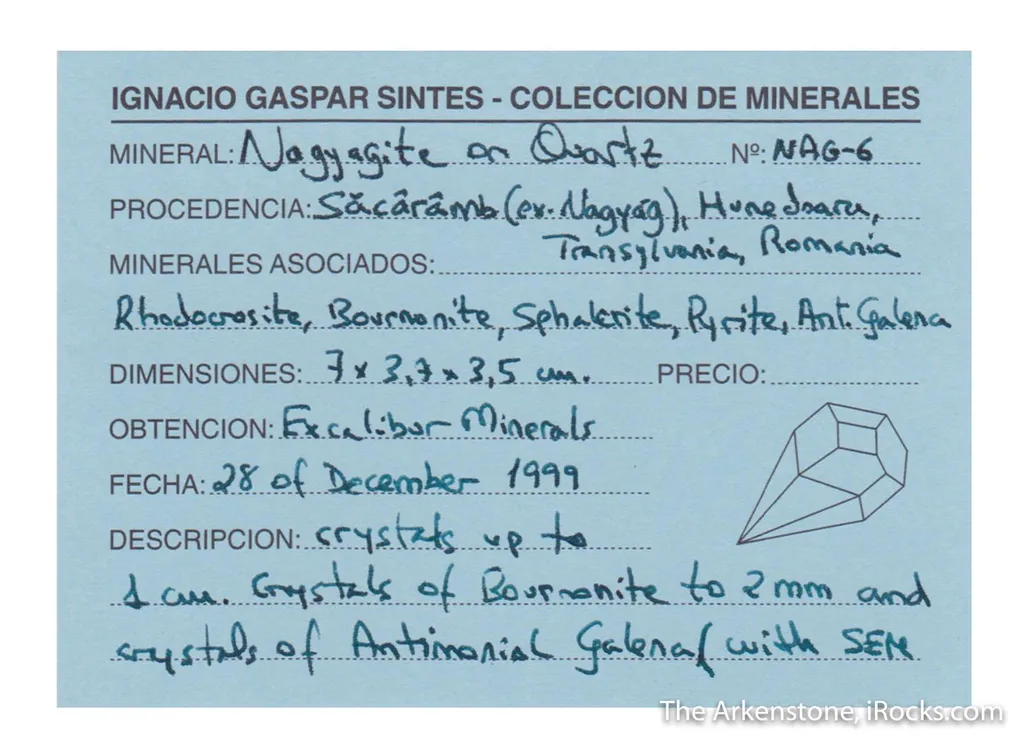 IGNACIO GASPAR SINTES - COLECCION DE MINERALES
MINERAL: Nagyagite on Quartz Nº: NAG-6
PROCEDENCIA: Săcărâmb (ex. Nagyág), Hunedoara,
Transylvania, Romania
MINERALES ASOCIADOS:
Rhodocrosite, Bournonite, Sphalerite, Pyrite, Ant. Galena
DIMENSIONES: 7 x 3,7 x 3,5 cm. PRECIO:
OBTENCION: Excalibur Minerals
FECHA: 28 of December 1999
DESCRIPCION: crystals up to
1 cm. Crystals of Bournonite to 2 mm and
crystals of Antimonial Galena (with SEM
The Arkenstone, iRocks.com